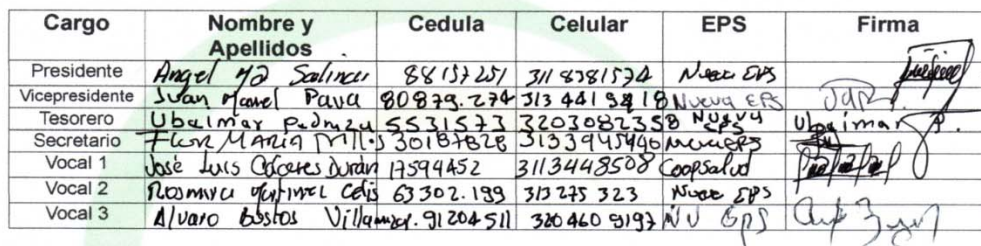 Cargo Nombre y Apellidos Cedula Celular EPS Firma
Presidente Angel Ma Salinas 88157251 311 8381574 Nueva EPS
Vicepresidente Juan Manuel Pava 80879.274 313 441 9818 Nueva EPS
Tesorero Ubalmar Pedraza 5531573 3203082358 Nueva EPS Ubalmar P.
Secretario Flor MARIA 30187828 3133945440 Nueva EPS
Vocal 1 José Luis Cáceres Durán 17594452 3113448508 Coopsalud
Vocal 2 Rosmira Martinez Celis 63302.199 313 275 323 Nueva EPS
Vocal 3 Alvaro Bastos Villamizar. 91204511 320 460 9197 NU EPS